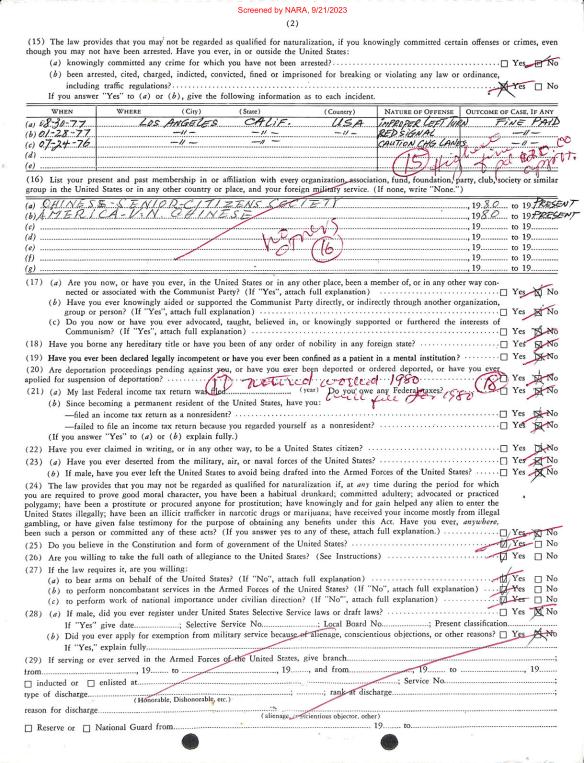 Screened by NARA, 9/21/2023
(2)
(15) The law provides that you may not be regarded as qualified for naturalization, if you knowingly committed certain offenses or crimes, even
though you may not have been arrested. Have you ever, in or outside the United States:
(a) knowingly committed any crime for which you have not been arrested? ☐ Yes ☒ No
(b) been arrested, cited, charged, indicted, convicted, fined or imprisoned for breaking or violating any law or ordinance,
including traffic regulations? ☒ Yes ☐ No
If you answer "Yes" to (a) or (b), give the following information as to each incident.
WHEN WHERE (City) (State) (Country) NATURE OF OFFENSE OUTCOME OF CASE, IF ANY
(a) 08-30-77 LOS ANGELES CALIF. USA IMPROPER LEFT TURN FINE PAID
(b) 01-28-77 -"- -"- -"- RED SIGNAL -"-
(c) 07-24-76 -"- -"- -"- CAUTION CHG LANES -"-
(d)
(e)
(15) Highest fine pd $20.00 approx.
(16) List your present and past membership in or affiliation with every organization, association, fund, foundation, party, club, society or similar
group in the United States or in any other country or place, and your foreign military service. (If none, write "None.")
(a) CHINESE-SENIOR-CITIZENS SOCIETY , 1980 to 19 PRESENT
(b) AMERICA-V.N. CHINESE , 1980 to 19 PRESENT
(c) , 19 to 19
(d) , 19 to 19
(e) , 19 to 19
(f) , 19 to 19
(g) , 19 to 19
no others
(16)
(17) (a) Are you now, or have you ever, in the United States or in any other place, been a member of, or in any other way con-
nected or associated with the Communist Party? (If "Yes", attach full explanation) ☐ Yes ☒ No
(b) Have you ever knowingly aided or supported the Communist Party directly, or indirectly through another organization,
group or person? (If "Yes", attach full explanation) ☐ Yes ☒ No
(c) Do you now or have you ever advocated, taught, believed in, or knowingly supported or furthered the interests of
Communism? (If "Yes", attach full explanation) ☐ Yes ☒ No
(18) Have you borne any hereditary title or have you been of any order of nobility in any foreign state? ☐ Yes ☒ No
(19) Have you ever been declared legally incompetent or have you ever been confined as a patient in a mental institution? ☐ Yes ☒ No
(20) Are deportation proceedings pending against you, or have you ever been deported or ordered deported, or have you ever
applied for suspension of deportation? ☐ Yes ☒ No
(17) retired worked 1980 (18)
(21) (a) My last Federal income tax return was filed (year) Do you owe any Federal taxes? ☐ Yes ☒ No
will file for 1980
(b) Since becoming a permanent resident of the United States, have you:
—filed an income tax return as a nonresident? ☐ Yes ☒ No
—failed to file an income tax return because you regarded yourself as a nonresident? ☐ Yes ☒ No
(If you answer "Yes" to (a) or (b) explain fully.)
(22) Have you ever claimed in writing, or in any other way, to be a United States citizen? ☐ Yes ☒ No
(23) (a) Have you ever deserted from the military, air, or naval forces of the United States? ☐ Yes ☒ No
(b) If male, have you ever left the United States to avoid being drafted into the Armed Forces of the United States? ☐ Yes ☒ No
(24) The law provides that you may not be regarded as qualified for naturalization if, at any time during the period for which
you are required to prove good moral character, you have been a habitual drunkard; committed adultery; advocated or practiced
polygamy; have been a prostitute or procured anyone for prostitution; have knowingly and for gain helped any alien to enter the
United States illegally; have been an illicit trafficker in narcotic drugs or marijuana; have received your income mostly from illegal
gambling, or have given false testimony for the purpose of obtaining any benefits under this Act. Have you ever, anywhere,
been such a person or committed any of these acts? (If you answer yes to any of these, attach full explanation.) ☐ Yes ☒ No
(25) Do you believe in the Constitution and form of government of the United States? ☒ Yes ☐ No
(26) Are you willing to take the full oath of allegiance to the United States? (See Instructions) ☒ Yes ☐ No
(27) If the law requires it, are you willing:
(a) to bear arms on behalf of the United States? (If "No", attach full explanation) ☒ Yes ☐ No
(b) to perform noncombatant services in the Armed Forces of the United States? (If "No", attach full explanation) ☒ Yes ☐ No
(c) to perform work of national importance under civilian direction? (If "No", attach full explanation) ☒ Yes ☐ No
(28) (a) If male, did you ever register under United States Selective Service laws or draft laws? ☐ Yes ☒ No
If "Yes" give date ; Selective Service No. ; Local Board No. ; Present classification
(b) Did you ever apply for exemption from military service because of alienage, conscientious objections, or other reasons? ☐ Yes ☒ No
If "Yes," explain fully
(29) If serving or ever served in the Armed Forces of the United States, give branch ;
from , 19 to , 19 , and from , 19 to , 19 ;
☐ inducted or ☐ enlisted at ; Service No. ;
type of discharge ; rank at discharge ;
(Honorable, Dishonorable, etc.)
reason for discharge
(alienage, conscientious objector, other)
☐ Reserve or ☐ National Guard from 19 to